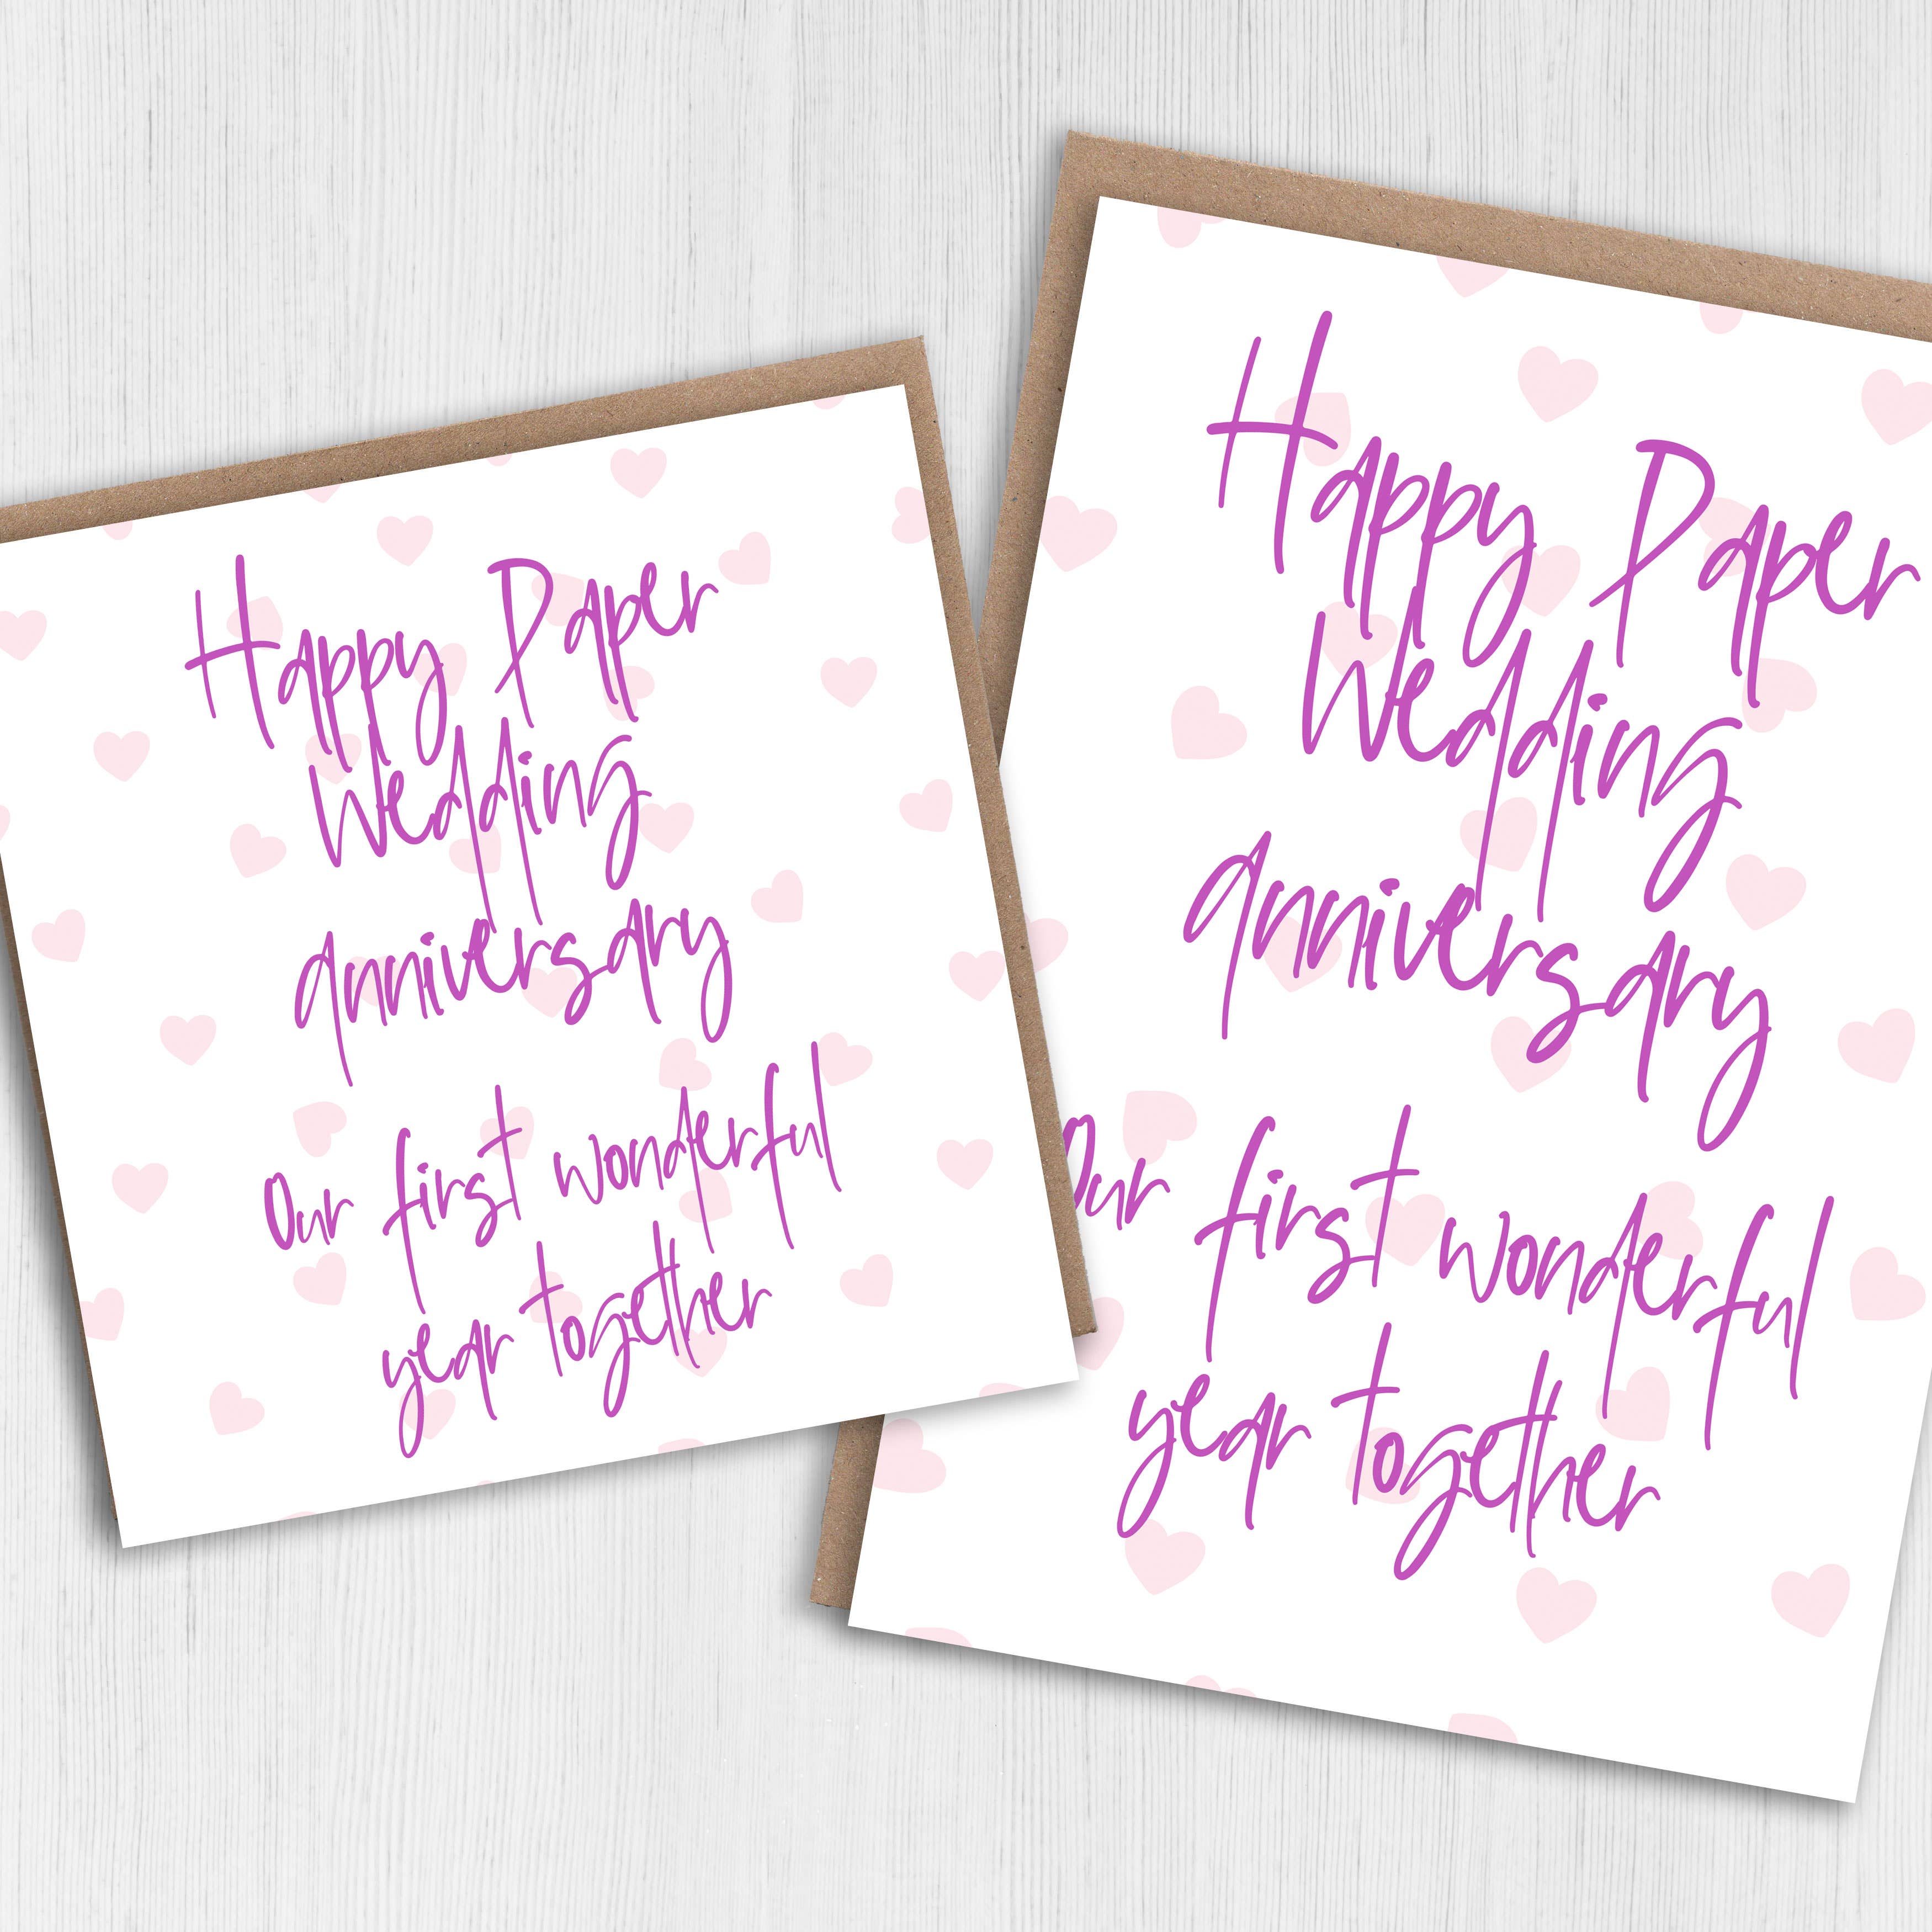 Happy Paper
Wedding
Anniversary
Our first wonderful
year together
Happy Paper
Wedding
Anniversary
Our first wonderful
year together